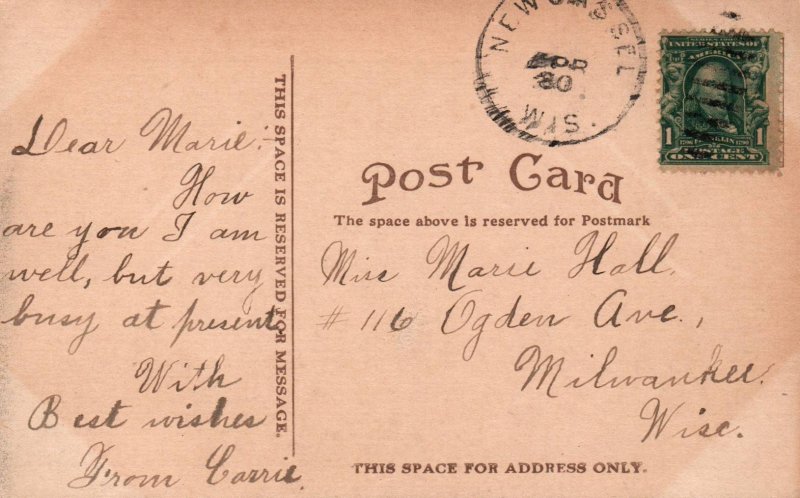 NEW CASSEL
APR
30
WIS.
SERIES 1902
UNITED STATES OF
AMERICA
1 FRANKLIN 1
POSTAGE
ONE CENT
Post Card
The space above is reserved for Postmark
THIS SPACE IS RESERVED FOR MESSAGE.
Dear Marie:
How
are you I am
well, but very
busy at present.
With
Best wishes
From Carrie
Miss Marie Hall,
# 116 Ogden Ave.,
Milwaukee.
Wisc.
THIS SPACE FOR ADDRESS ONLY.